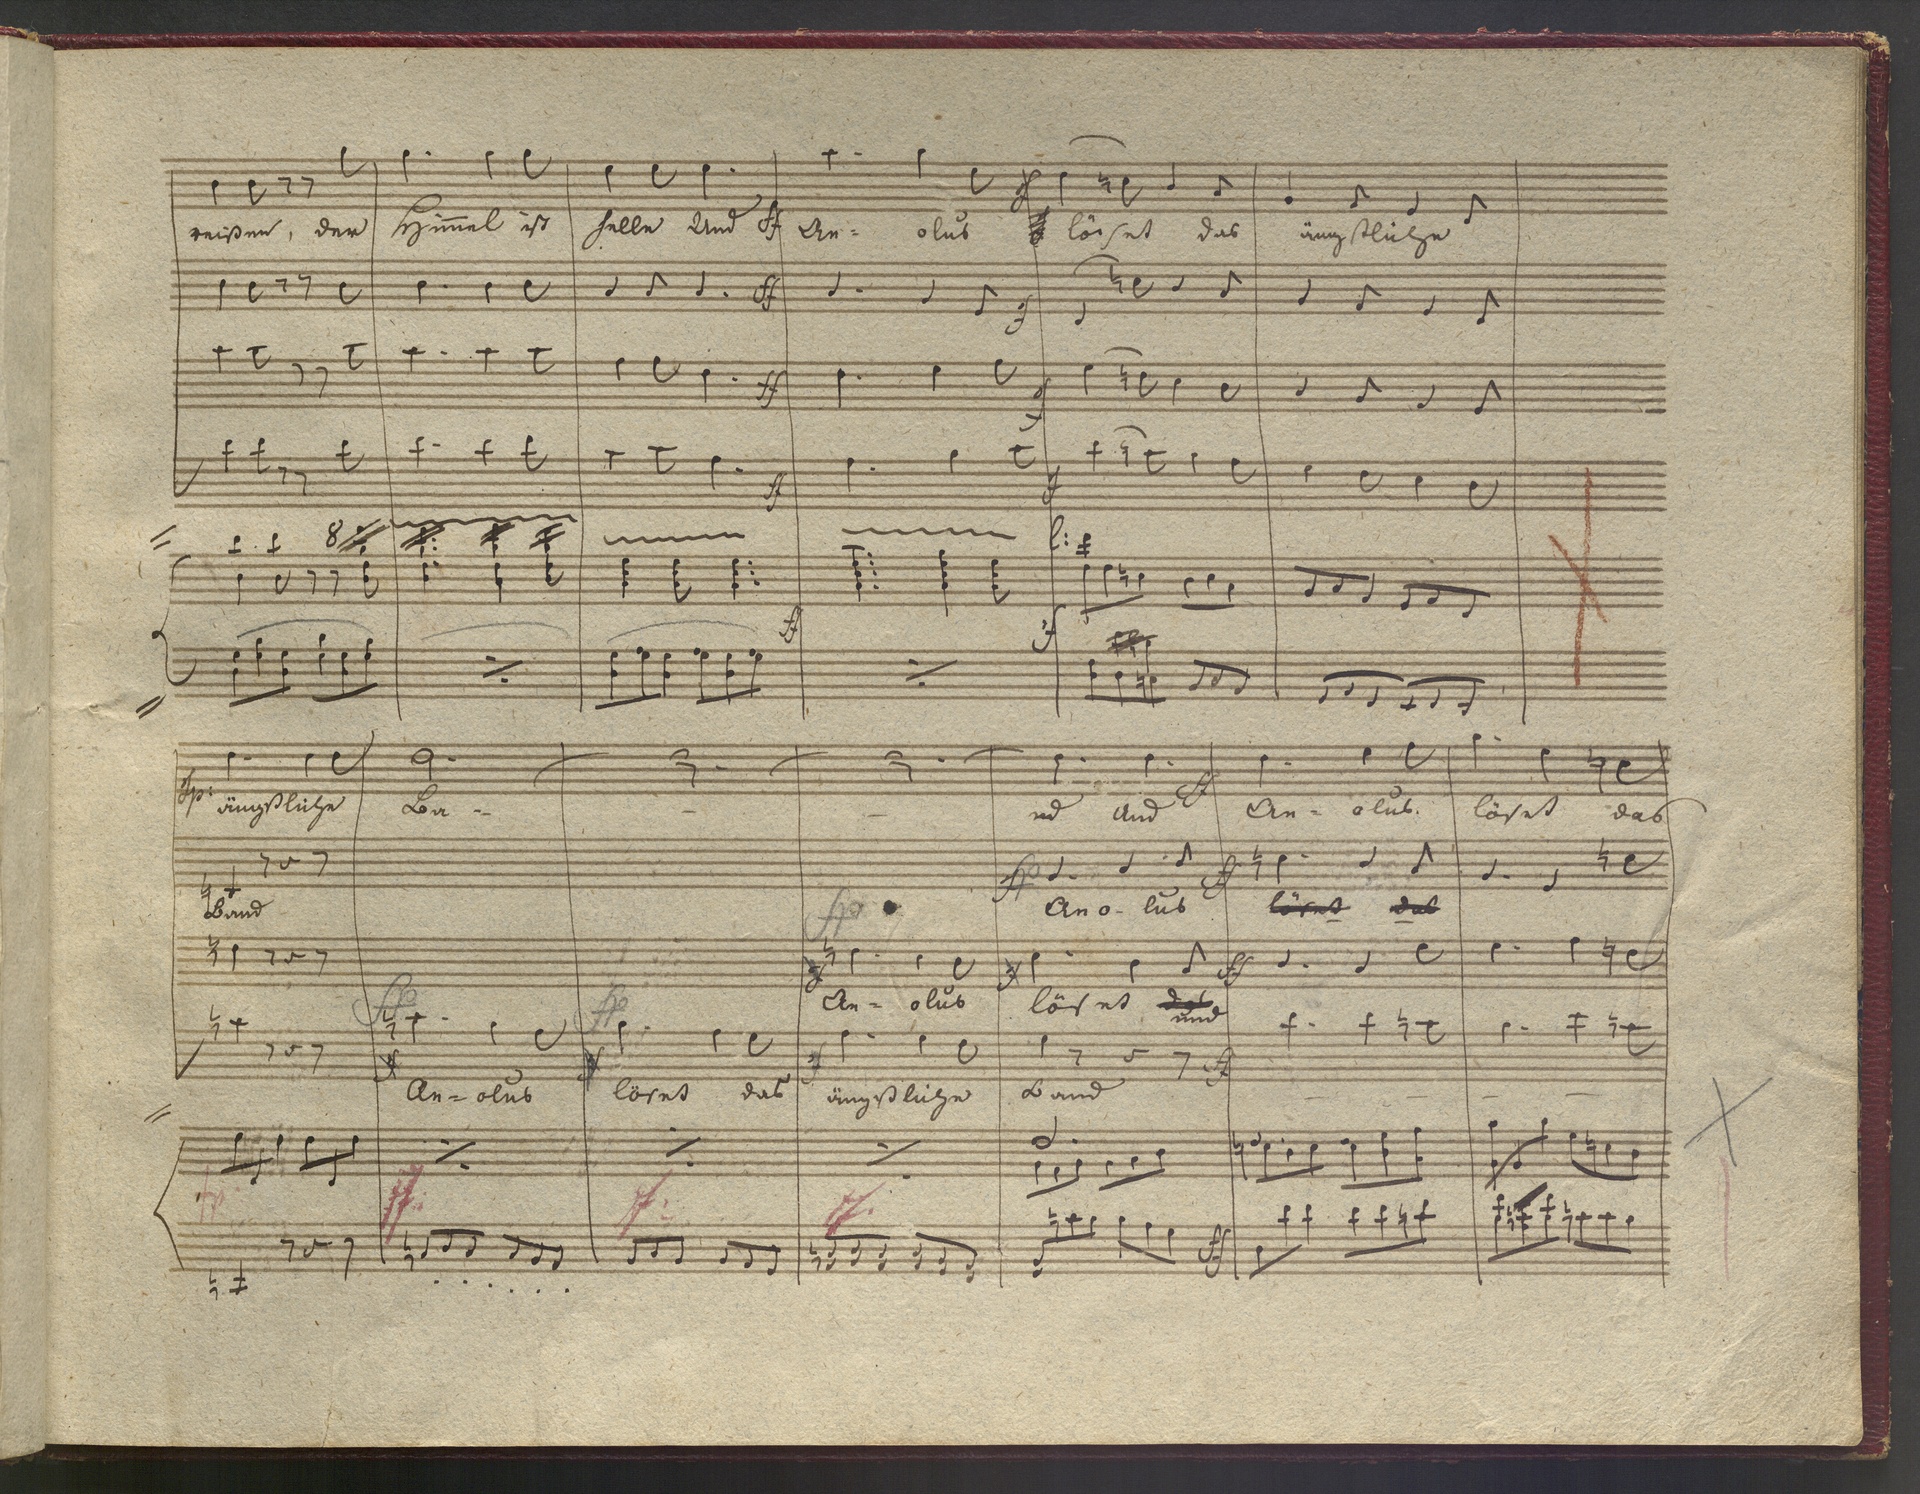 reißen, der Him̅el ist helle Und ff Aeo= olus löset das ängstliche
ff f
ff f
ff f
8 l:
ff f
fp: ängstliche Ba - - - - nd und ff Aeo - olus. löset das
fp ff
Band fp Aeo- lus löset das
ff
fp fp Aeo= olus löset das und
f ff
Aeo=olus löset das ängstliche Band - - - -
fp ff. ff. ff.
ff